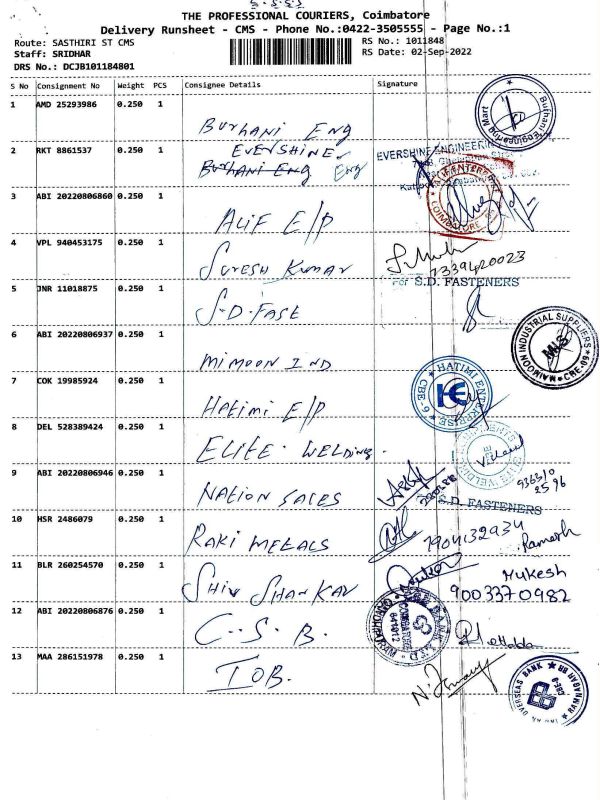 THE PROFESSIONAL COURIERS, Coimbatore
Delivery Runsheet - CMS - Phone No.:0422-3505555 - Page No.:1
Route: SASTHIRI ST CMS
RS No.: 1011848
Staff: SRIDHAR
RS Date: 02-Sep-2022
DRS No.: DCJB101184801
S No Consignment No Weight PCS Consignee Details Signature
1 AMD 25293986 0.250 1
Burhani Eng
Burhani Engineering Mart
2 RKT 8861537 0.250 1
EVERSHINE
Burhani Eng Eng
EVERSHINE ENGINEERING
3 ABI 20220806860 0.250 1
ALIF E/P
COIMBATORE
4 VPL 940453175 0.250 1
Suresh Kumar
7339420023
5 JNR 11018875 0.250 1
For S.D. FASTENERS
S.D.FAST
6 ABI 20220806937 0.250 1
MIMOON IND
MAIMOON INDUSTRIAL SUPPLIERS
MIS
CBE-09
7 COK 19985924 0.250 1
Hatimi E/P
HATIMI ENTERPRISE
CBE-9
HE
8 DEL 528389424 0.250 1
ELITE WELDING
9 ABI 20220806946 0.250 1
NATION SALES
S.D. FASTENERS
10 HSR 2486079 0.250 1
RAKI METALS
7904132934
Ramesh
11 BLR 260254570 0.250 1
SHIV SHANKAR
Mukesh
9003370982
12 ABI 20220806876 0.250 1
C.S.B.
COIMBATORE
641012
13 MAA 286151978 0.250 1
IOB.
OVERSEAS BANK